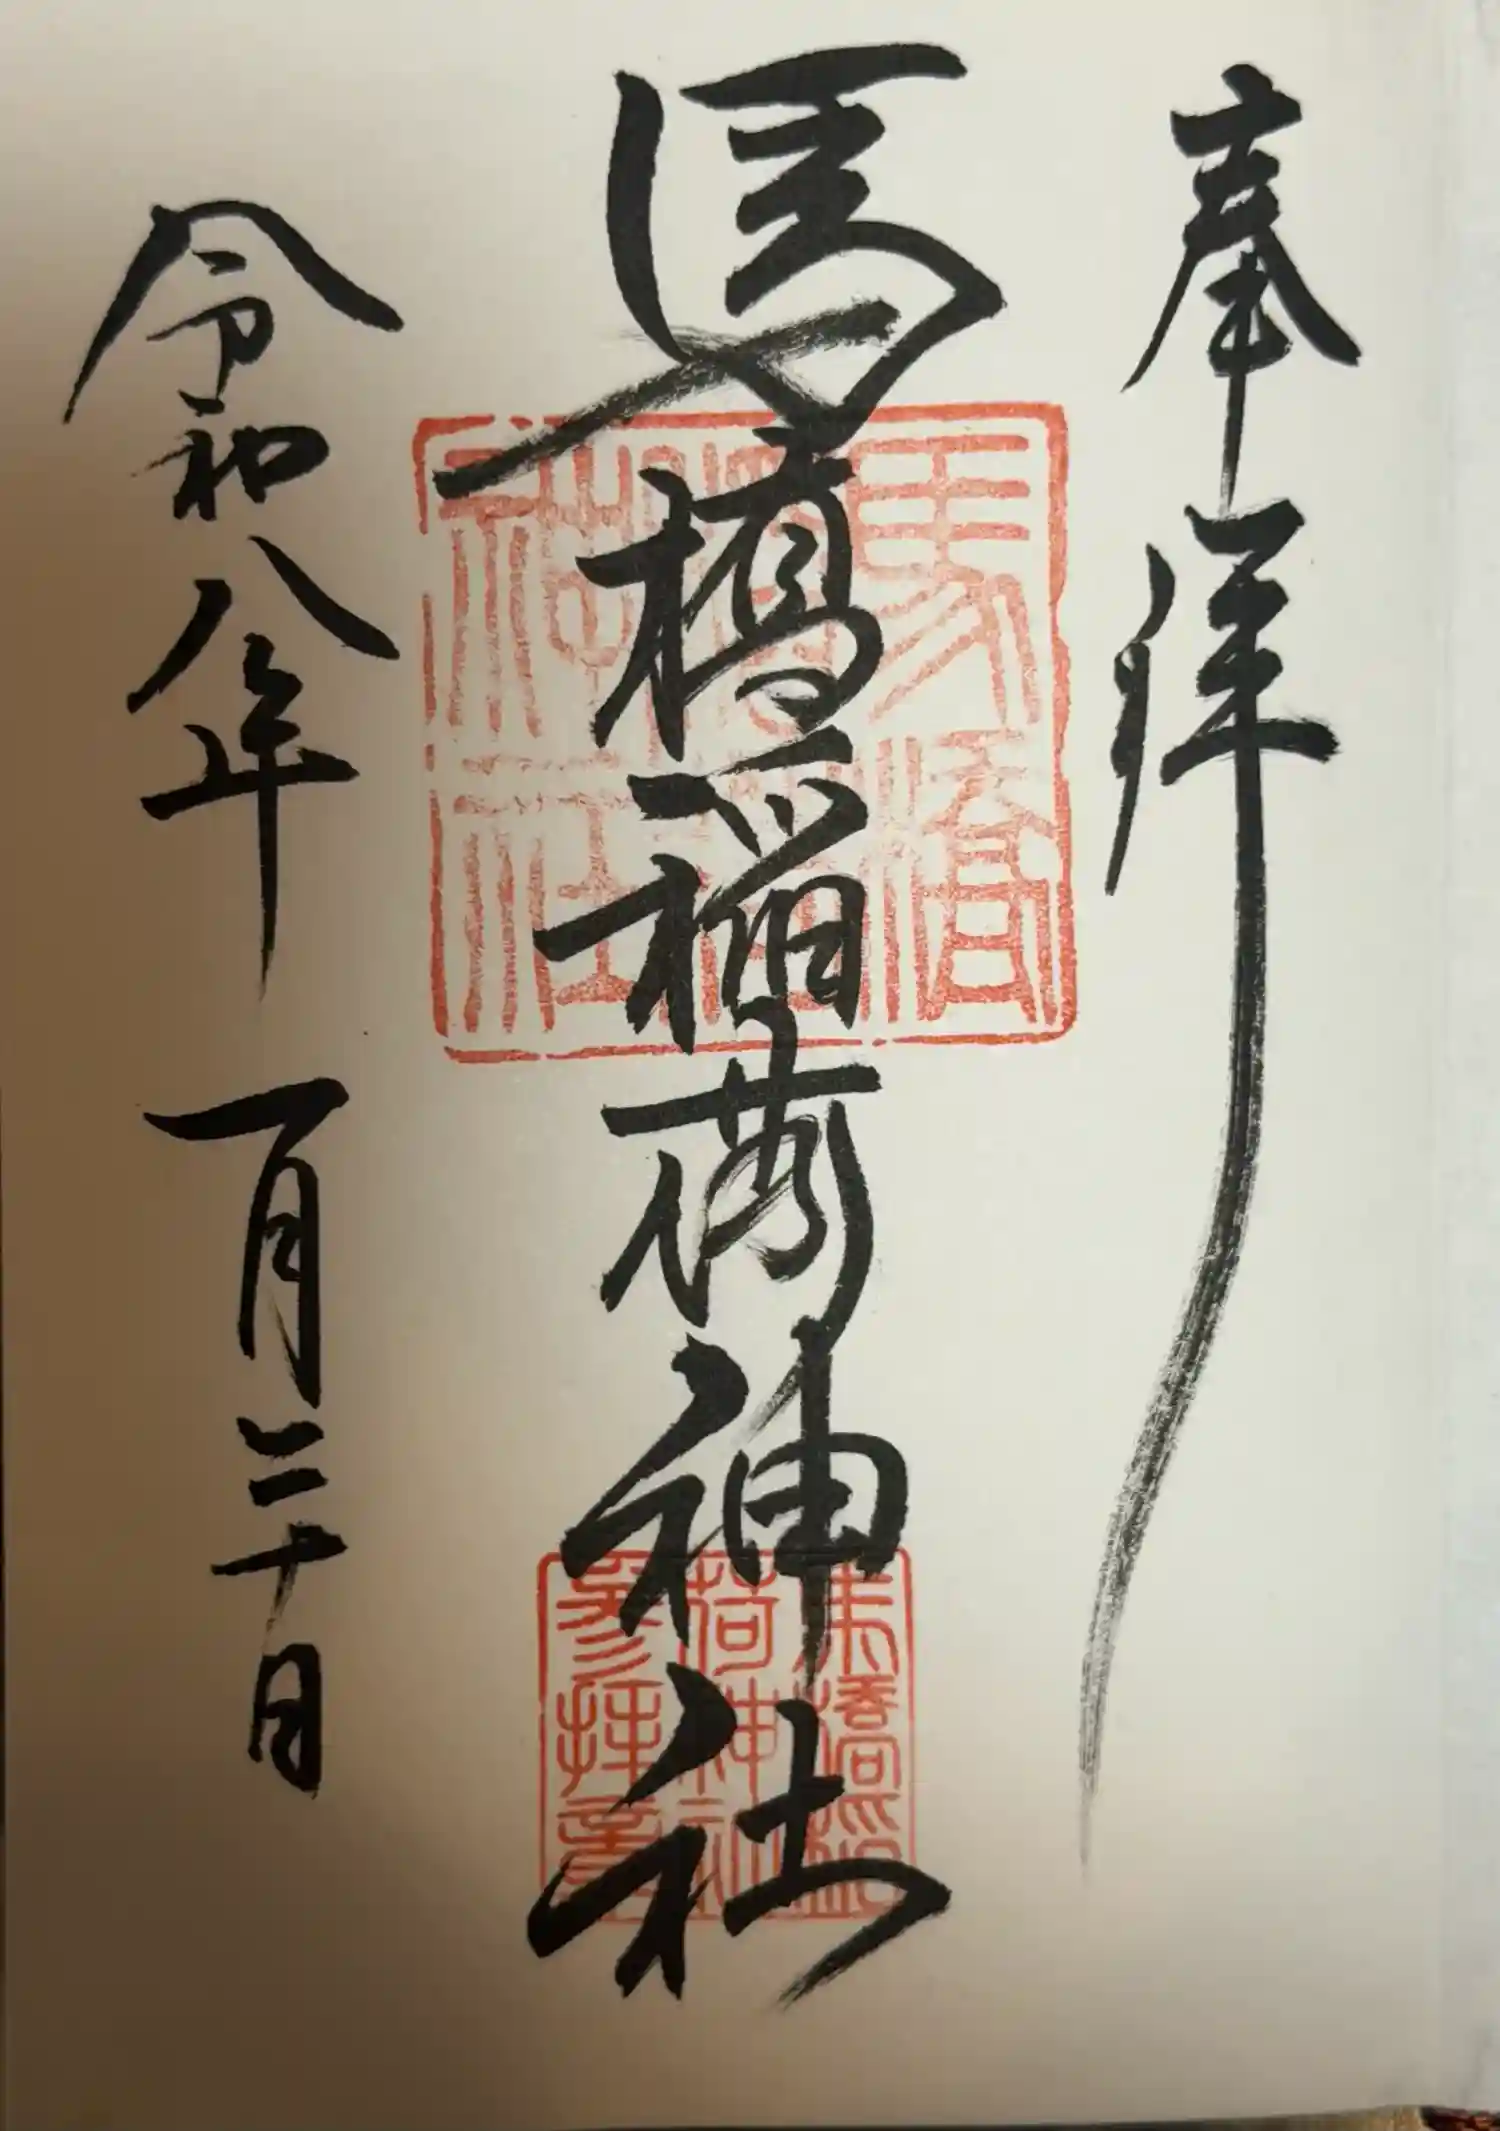 奉拝
馬橋稲荷神社
令和八年 一月二十日
馬橋
神社
馬橋稲
荷神社
参拝章